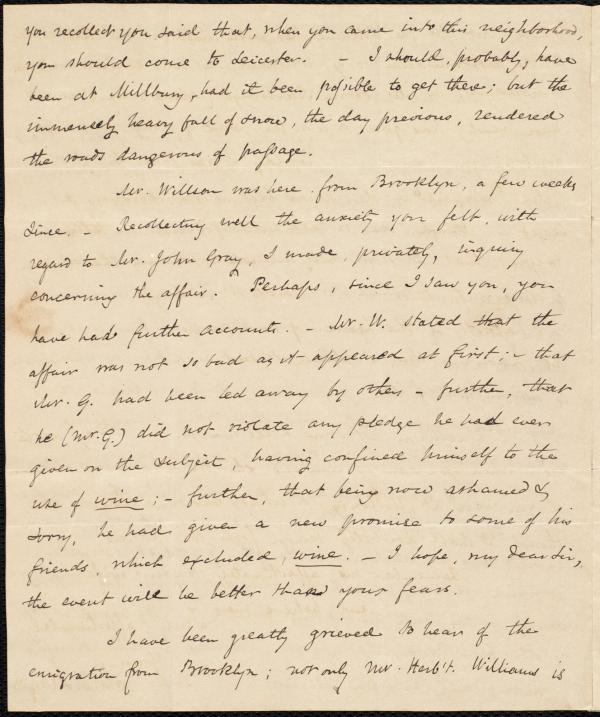 you recollect you said that, when you came into this neighborhood,
you should come to Leicester. – I should, probably, have
been at Millbury, had it been possible to get there; but the
immensely heavy fall of snow, the day previous, rendered
the roads dangerous of passage.
Mr. Willson was here from Brooklyn, a few weeks
since. – Recollecting well the anxiety you felt, with
regard to Mr. John Gray, I made, privately, inquiry
concerning the affair. Perhaps, since I saw you, you
have had further accounts. – Mr. W. stated that the
affair was not so bad as it appeared at first; – that
Mr. G. had been led away by others – further, that
he (Mr. G.) did not violate any pledge he had ever
given on the subject, having confined himself to the
use of wine; – further, that being now ashamed &
sorry, he had given a new promise to some of his
friends, which excluded, wine. – I hope, my dear Sir,
the event will be better than your fears.
I have been greatly grieved to hear of the
emigration from Brooklyn; not only Mr. Herb't. Williams is